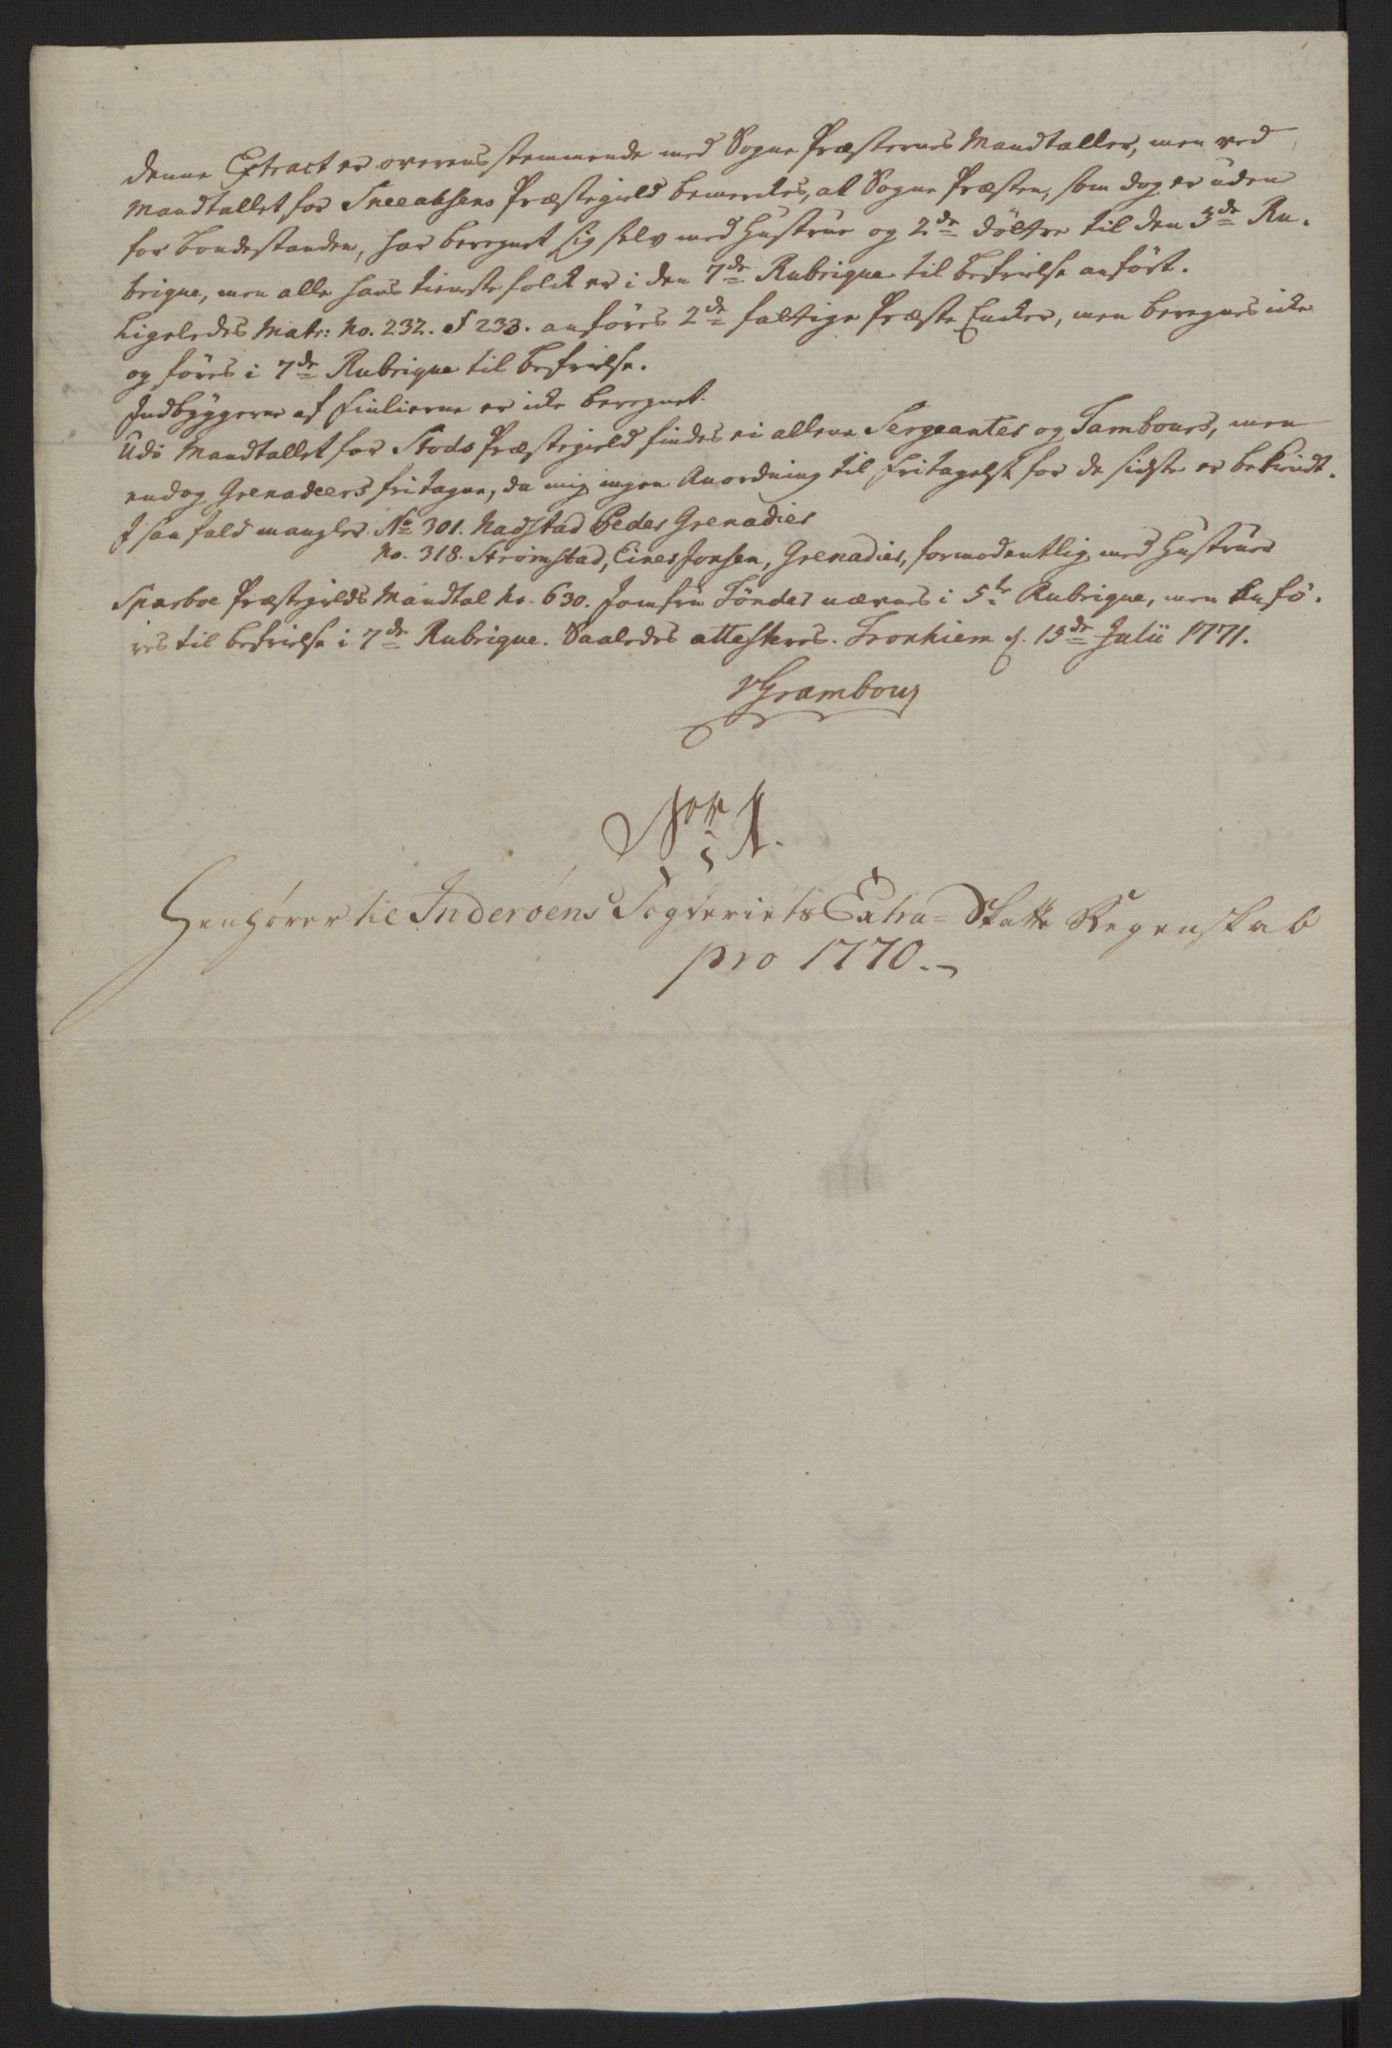 Denne Extract er overensstemmende med Sogne Præsternes Mandtaller, men ved
Mandtallet for Sneeaasens Præstegield bemerkes, at Sogne Præsten, som dog er uden
for bondestanden, har beregnet sig selv med Hustrue og 2de Døttre til den 3de Ru-
brique, men alle hans tienstefolk er i den 7de Rubrique til befrielse anført.
Ligeledes Matr: No. 232. & 233. anføres 2de fattige Præste Enker, men beregnes ikke
og føres i 7de Rubrique til befrielse.
Indbyggerne af Finlierne er ikke beregnet.
Udi Mandtallet for Stods Præstegield findes ei allene Sergeanter og Tambours, men
endog Grenadeers fritagne, da mig ingen Anordning til Fritagelse for de sidste er bekiendt.
I saa fald mangler No 301. Nadstad Peder Grenadier
No. 318. Strømstad, Einer Jonsen, Grenadier, formodentlig med Hustruer
Sparboe Præstegields Mandtal No. 630. Jomfru Tønder nævnes i 5te Rubrique, men anfø-
res til befrielse i 7de Rubrique. Saaledes attesteres. Tronhiem d. 15de Julii 1771.
Grambou
1.
Henhører til Inderøens Fogderiets Extra-Skatte Regenskab
pro 1770.